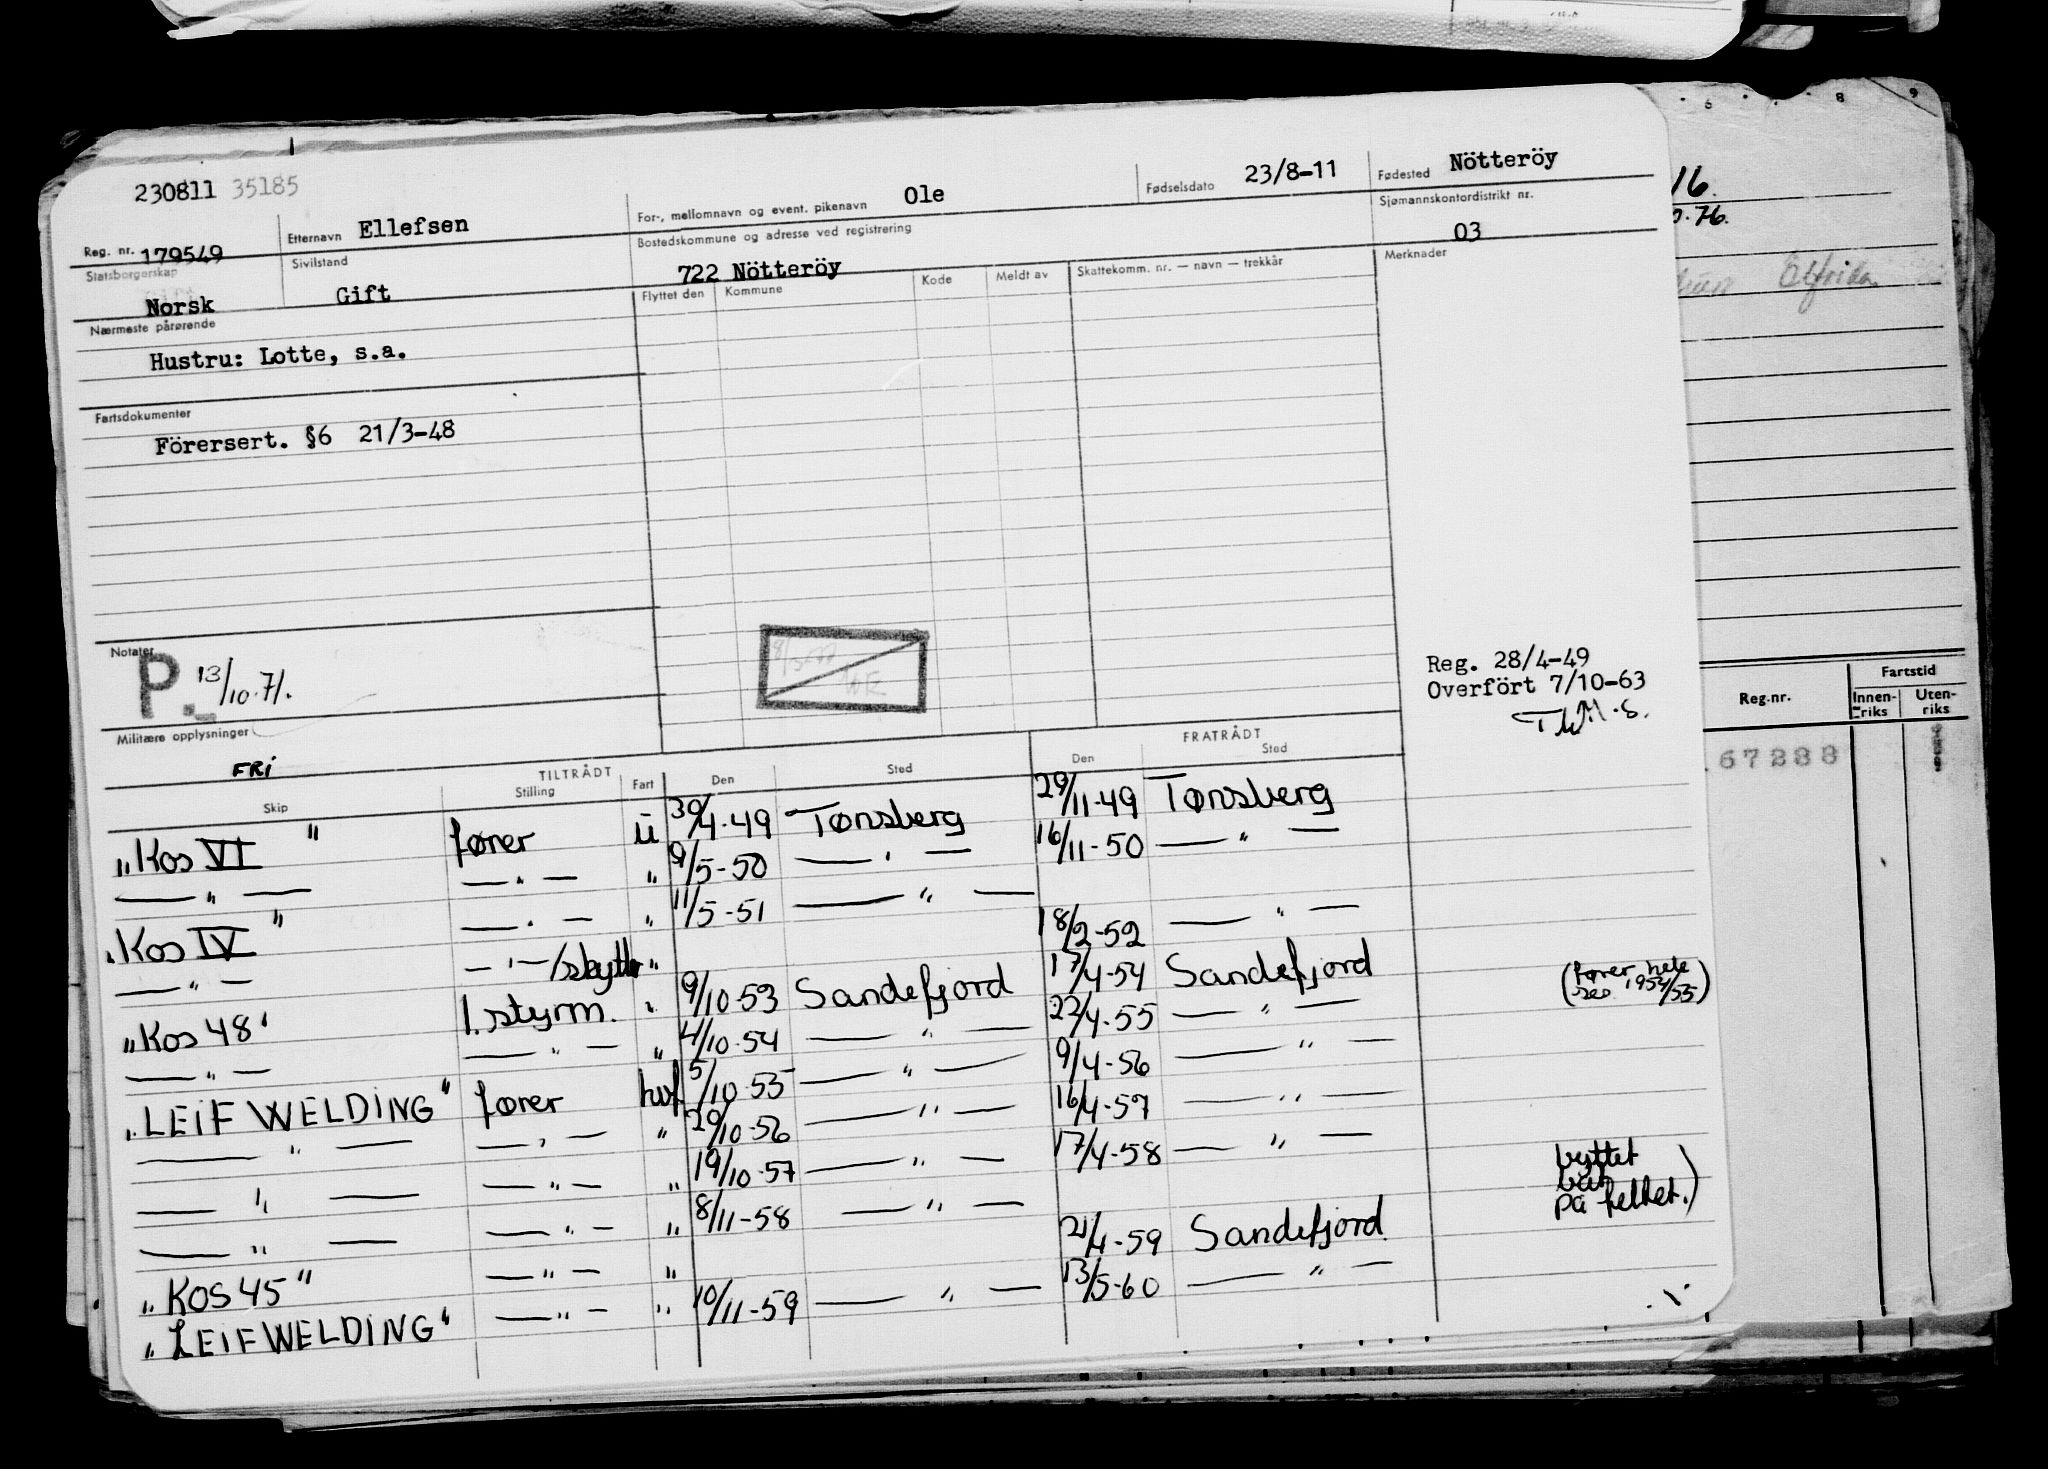 230811 35185
Reg. nr. 179549
Etternavn Ellefsen
For-, mellomnavn og event. pikenavn Ole
Fødselsdato 23/8-11
Fødested Nötteröy
Statsborgerskap Norsk
Sivilstand Gift
Bostedskommune og adresse ved registrering
722 Nötteröy
Sjømannskontordistrikt nr.
03
Nærmeste pårørende
Hustru: Lotte, s.a.
Flyttet den Kommune Kode Meldt av Skattekomm. nr. — navn — trekkår
Merknader
Fartsdokumenter
Förersert. §6 21/3-48
Notater
P. 13/10.71.
Reg. 28/4-49
Overfört 7/10-63
Militære opplysninger
FRI
TILTRÅDT FRATRÅDT
Skip Stilling Fart Den Sted Den Sted
"Kos VI" fører ü 30/4-49 Tønsberg 29/11-49 Tønsberg
— " — — " — " 9/5-50 — " — 16/11-50 — " —
"Kos IV" — " — " 11/5-51 — " —
— " — — " —/skytter " 18/2-52 — " —
"Kos 48" 1. styrm. " 9/10-53 Sandefjord 17/4-54 Sandefjord
— " — — " — " 4/10-54 — " — 22/4-55 — " — (fører hele ses. 1954/55)
"LEIF WELDING" fører hvf 5/10-55 — " — 9/4-56 — " —
— " — — " — " 20/10-56 — " — 16/4-57 — " —
— " — — " — " 19/10-57 — " — 17/4-58 — " —
— " — — " — " 8/11-58 — " — byttet båt på feltet.)
"KOS 45" — " — " 21/4-59 Sandefjord
"LEIF WELDING" — " — " 10/11-59 — " — 13/5-60 — " —
6 8 9
16.
.76.
Elfrida
Reg.nr.
Fartstid
Innen-riks Uten-riks
67288